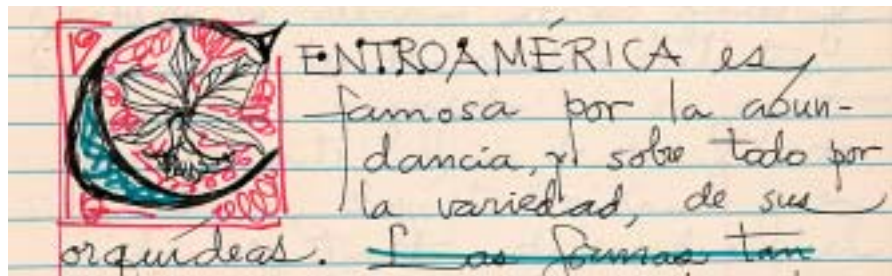 CENTROAMÉRICA es
famosa por la abun-
dancia, y sobre todo por
la variedad, de sus
orquídeas. Las formas tan